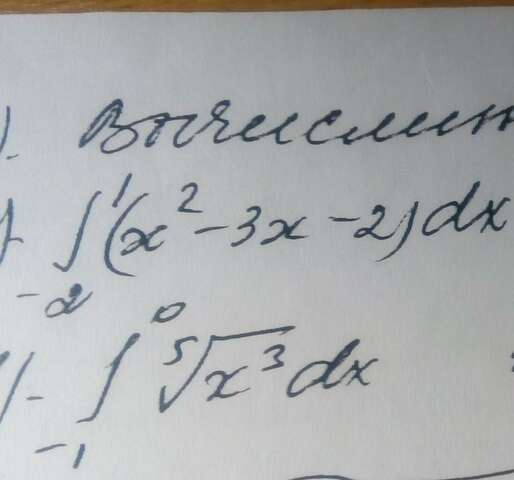 ). Вычислит
∫₋₂¹ (x² - 3x - 2) dx
- ∫₋₁⁰ ⁵√x³ dx